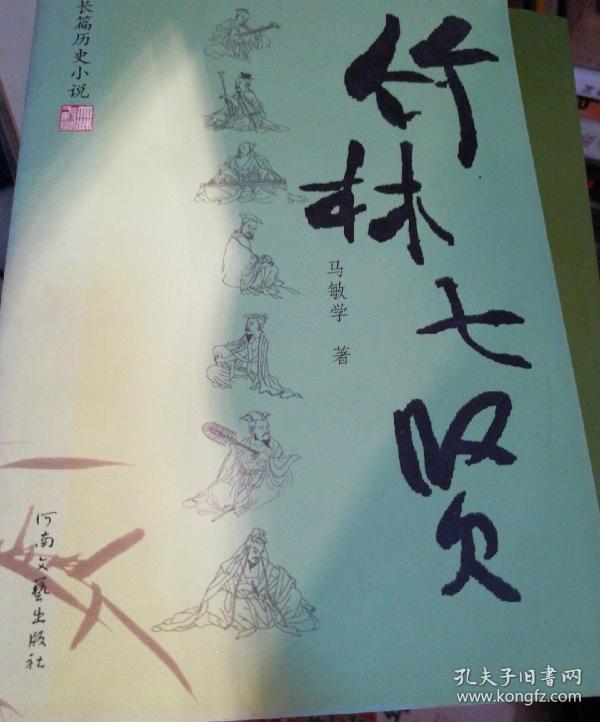 长篇历史小说
竹林七贤
马敏学 著
河南文艺出版社
孔夫子旧书网
www.kongfz.com